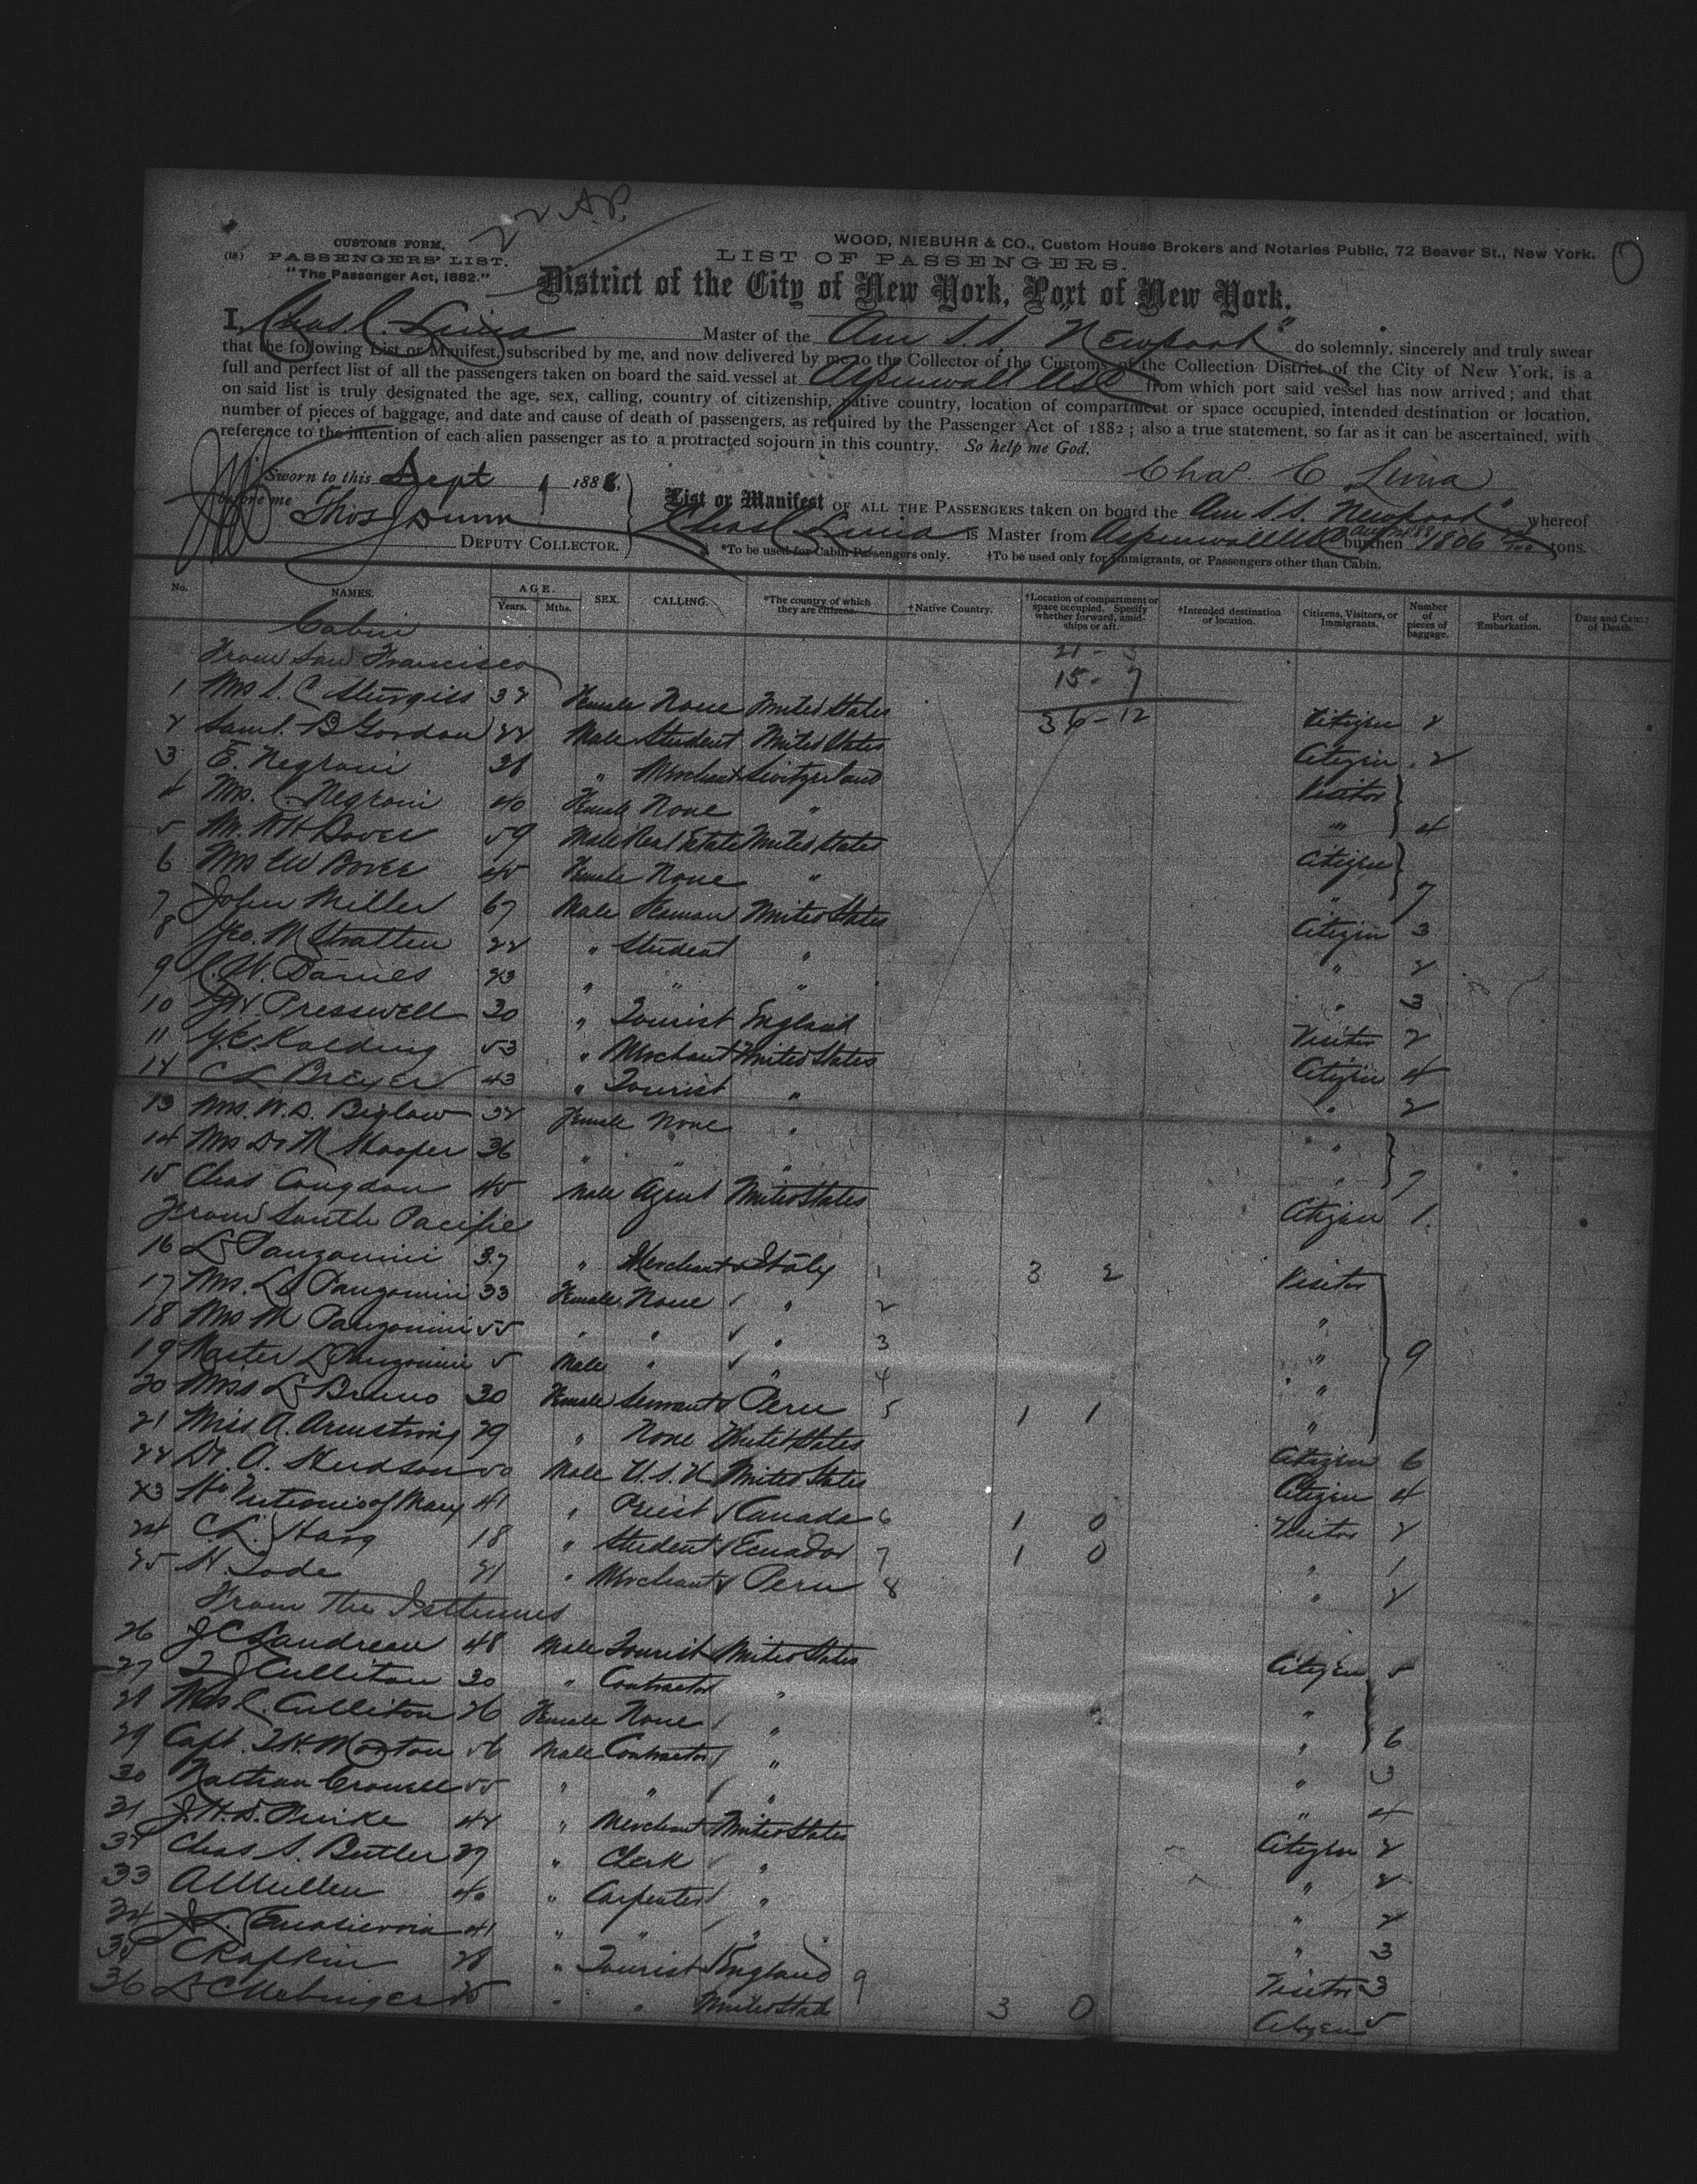 2 A.P.
WOOD, NIEBUHR & CO., Custom House Brokers and Notaries Public, 72 Beaver St., New York.
(18)
CUSTOMS FORM,
PASSENGERS' LIST.
"The Passenger Act, 1882."
LIST OF PASSENGERS.
District of the City of New York, Port of New York.
I, Chas. C. Lima Master of the Am S.S. "Newport" do solemnly, sincerely and truly swear
that the following List or Manifest, subscribed by me, and now delivered by me to the Collector of the Customs of the Collection District of the City of New York, is a
full and perfect list of all the passengers taken on board the said vessel at Aspinwall USC from which port said vessel has now arrived; and that
on said list is truly designated the age, sex, calling, country of citizenship, native country, location of compartment or space occupied, intended destination or location,
number of pieces of baggage, and date and cause of death of passengers, as required by the Passenger Act of 1882; also a true statement, so far as it can be ascertained, with
reference to the intention of each alien passenger as to a protracted sojourn in this country. So help me God.
Chas. C Lima
Sworn to this Sept 1 1888,
before me Thos J Dunn
DEPUTY COLLECTOR.
List or Manifest OF ALL THE PASSENGERS taken on board the Am S.S. Newport whereof
Chas C Lima is Master from Aspinwall USC burthen 1806 tons.
*To be used for Cabin Passengers only. †To be used only for Immigrants, or Passengers other than Cabin.
No. NAMES. AGE. Years. Mths. SEX. CALLING. *The country of which they are citizens. †Native Country. †Location of compartment or space occupied. Specify whether forward, amidships or aft. †Intended destination or location. Citizens, Visitors, or Immigrants. Number of pieces of baggage. Port of Embarkation. Date and Cause of Death.
Cabin
From San Francisco
21 - 5
15 - 7
36 - 12
1 Mrs S. C Sturgiss 32 Female None United States Citizen 2
2 Saml. B Gordon 22 Male Student United States Citizen 2
3 E. Negroni 38 " Merchant Switzerland Visitor
4 Mrs. C. Negroni 40 Female None " " 4
5 Mr. W H Dover 59 Male Real Estate United States Citizen
6 Mrs E W Dover 45 Female None " " 7
7 John Miller 67 Male Seaman United States Citizen 3
8 Geo. M Stratten 22 " Student " " 2
9 C. W. Daniels 23 " " " " 3
10 J W. Presswell 30 " Tourist England Visitor 2
11 Y. C. Kolding 53 " Merchant United States Citizen 4
12 C L Breyer 43 " Tourist " " 2
13 Mrs. W. D. Biglow 32 Female None " "
14 Mrs Dr M Hooper 36 " " " " 7
15 Chas Congdon 45 Male Agent United States Citizen 1
From South Pacific
16 L Panzonini 37 " Merchant Italy 1 3 2 Visitor
17 Mrs. L Panzonini 33 Female None " 2 "
18 Mrs M Panzonini 55 " " " 3 " 9
19 Master L Panzonini 5 Male " " 4 "
20 Miss L Bruno 30 Female Servant Peru 5 1 1 "
21 Miss A. Armstrong 29 " None United States Citizen 6
22 Dr. A. Hudson 50 Male U.S.N United States Citizen 4
23 of Mary 41 " Priest Canada 6 1 0 Visitor 2
24 C L. Harg 18 " Student Ecuador 7 1 0 " 1
25 H. Tode 21 " Merchant Peru 8 " 2
From The Isthmus
26 J C Landreau 48 Male Tourist United States Citizen 5
27 T J Culliton 30 " Contractor " "
28 Mrs C. Culliton 26 Female None " " 6
29 Capt. T. H. Morton 56 Male Contractor " " 3
30 Nathan Crowell 55 " " " " 4
31 J. H. D. 42 " Merchant United States Citizen 2
32 Chas S. Butler 27 " Clerk " " 2
33 A Mullen 40 " Carpenter " " 2
34 41 " " " " 3
35 C Rapkin 28 " Tourist England 9 Visitor 3
36 25 " " United State 3 0 Citizen 5